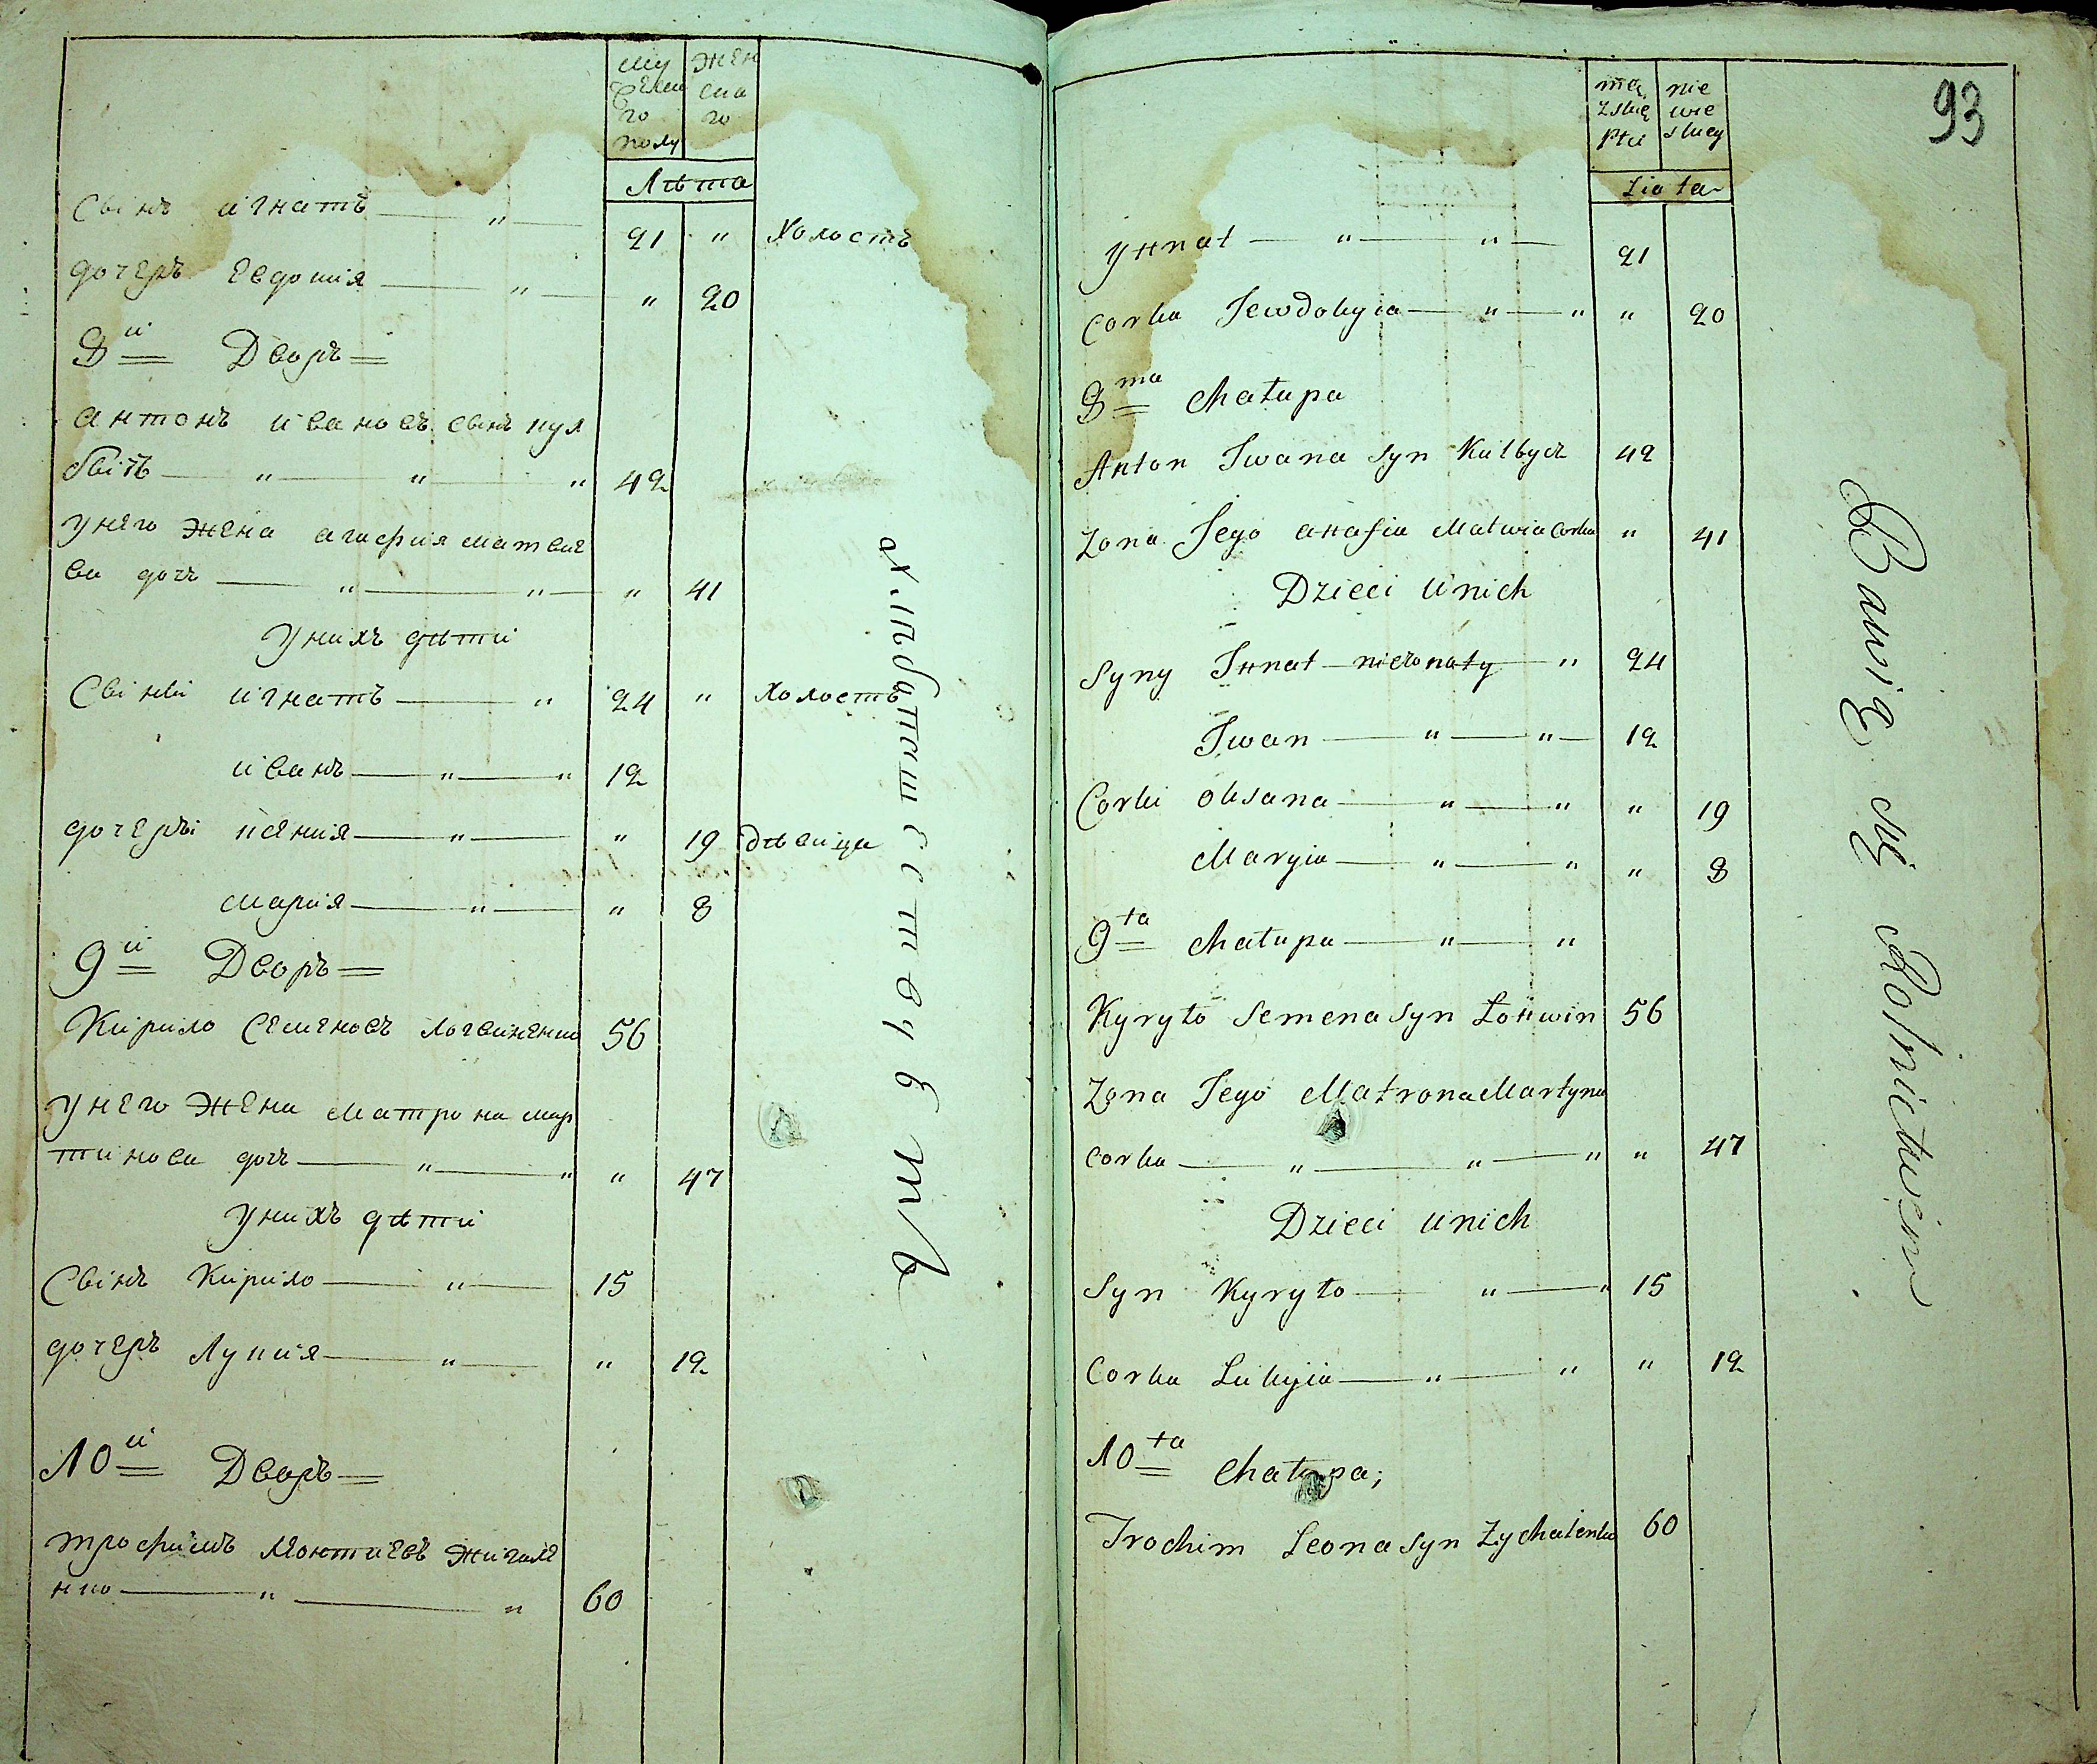 му жен
ческа ска
го го
полу
Лѣта
Свінъ игнатъ — " — 21 " Холостъ
дочеръ Евдокия — " — " 20
8й Дворъ
антонъ ивановъ синъ кул
бѣічъ — " — " — " 42
унего жена агафия матвие
ва дочъ — " — " — " 41
Унихъ дѣти
Свінві игнатъ — " 24 " Холостъ
иванъ — " — " 12
дочерві ксения — " — " 19 дѣвица
мария — " — " 8
9й Дворъ
Кирило Семеновъ логвиненко 56
унего жена матрона мар
тинова дочъ — " — " " 47
Унихъ дѣти
Свінъ Кирило — " — 15
дочеръ Лукия — " — " 12
10й Дворъ
трофимъ леонтиевъ жигале
нко — " — " 60
Хлѣбапашеству
93
męz nie
zskię wie
płci skiey
Liata
Yhnat — " — " — 21
Corka Jewdokyia — " — " " 20
8ma Chałupa
Anton Jwana Syn Kulbycz 42
Zona Jego ahafia Matwia Corka " 41
Dzieci Unich
Syny Jhnat — niezonaty — " 24
Jwan — " — " — 12
Corki oksana — " — " " 19
Maryia — " — " " 8
9ta Chałupa — " — "
Kyryło Semena Syn Łohwin 56
Zona Jego Matrona Martyna
corka — " — " — " " 47
Dzieci unich
Syn Kyryło — " — " 15
Corka Lukyia — " — " " 12
10ta Chałupa;
Trochim Leona Syn Zychalenko 60
Bawią się Rolnictwem